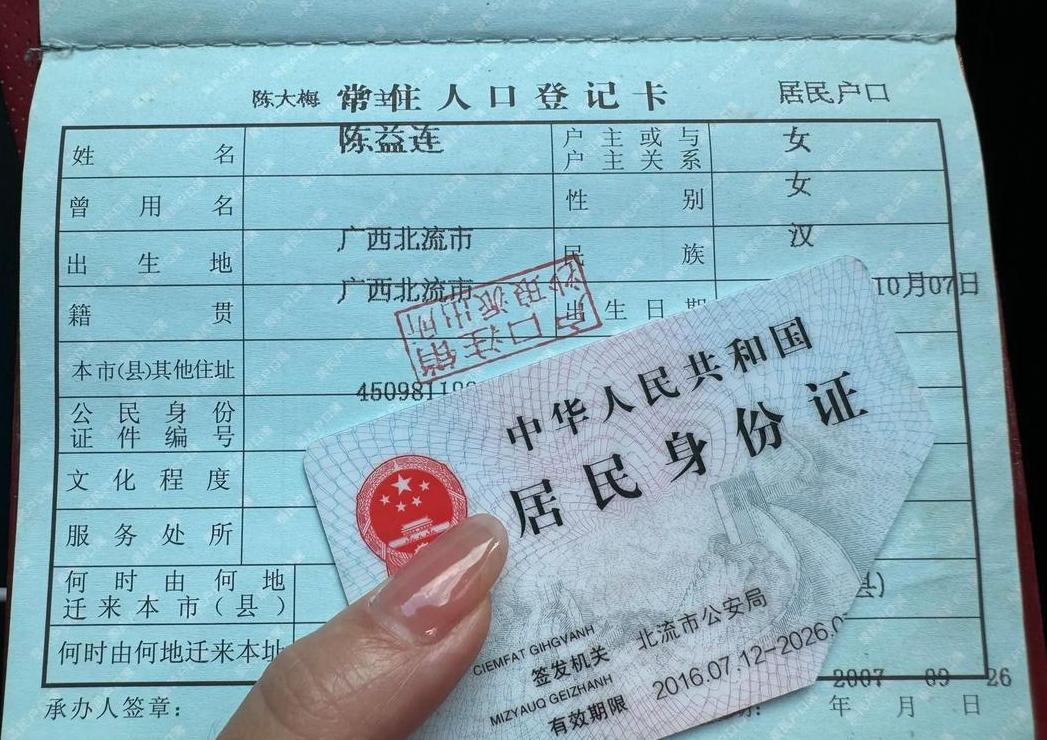 陈大梅 户主 常住人口登记卡 居民户口
姓名 陈益连 户主或与户主关系 女
曾用名 性别 女
出生地 广西北流市 民族 汉
籍贯 广西北流市 出生日期 10月07日
户口注销
沙垠派出所
本市(县)其他住址
公民身份证件编号 45098119
文化程度
服务处所
何时由何地迁来本市(县)
县)
何时由何地迁来本址
承办人签章: 2007 09 26
年 月 日
中华人民共和国
居民身份证
CIEMFAT GIHGVANH
签发机关 北流市公安局
MIZYAUQ GEIZHANH
有效期限 2016.07.12-2026.0